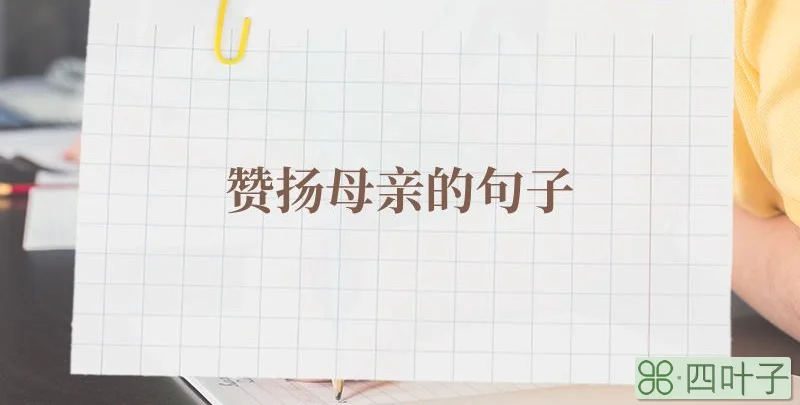 赞扬母亲的句子
四叶子